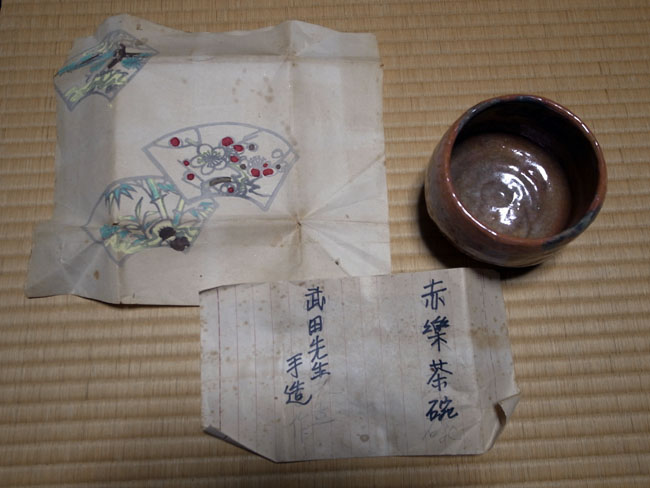 赤樂茶碗
武田先生
手造